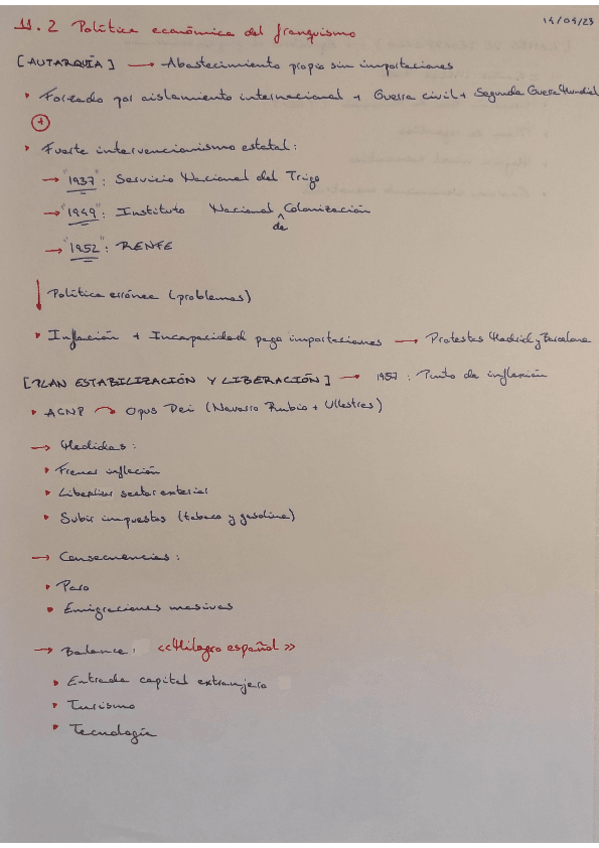 14/04/23
11.2 Política económica del franquismo
[AUTARQUÍA] → Abastecimiento propio sin importaciones
• Forzado por aislamiento internacional + Guerra civil + Segunda Guerra Mundial
+
• Fuerte intervencionismo estatal:
→ "1937": Servicio Nacional del Trigo
→ "1949": Instituto Nacional de Colonización
→ "1952": RENFE
↓ Política errónea (problemas)
• Inflación + Incapacidad pago importaciones → Protestas Madrid y Barcelona
[PLAN ESTABILIZACIÓN Y LIBERACIÓN] → 1957: Punto de inflexión
• ACNP → Opus Dei (Navarro Rubio + Ullestres)
→ Medidas:
• Frenar inflación
• Liberalizar sector exterior
• Subir impuestos (tabaco y gasolina)
→ Consecuencias:
• Paro
• Emigraciones masivas
→ Balance: «Milagro español»
• Entrada capital extranjero
• Turismo
• Tecnología